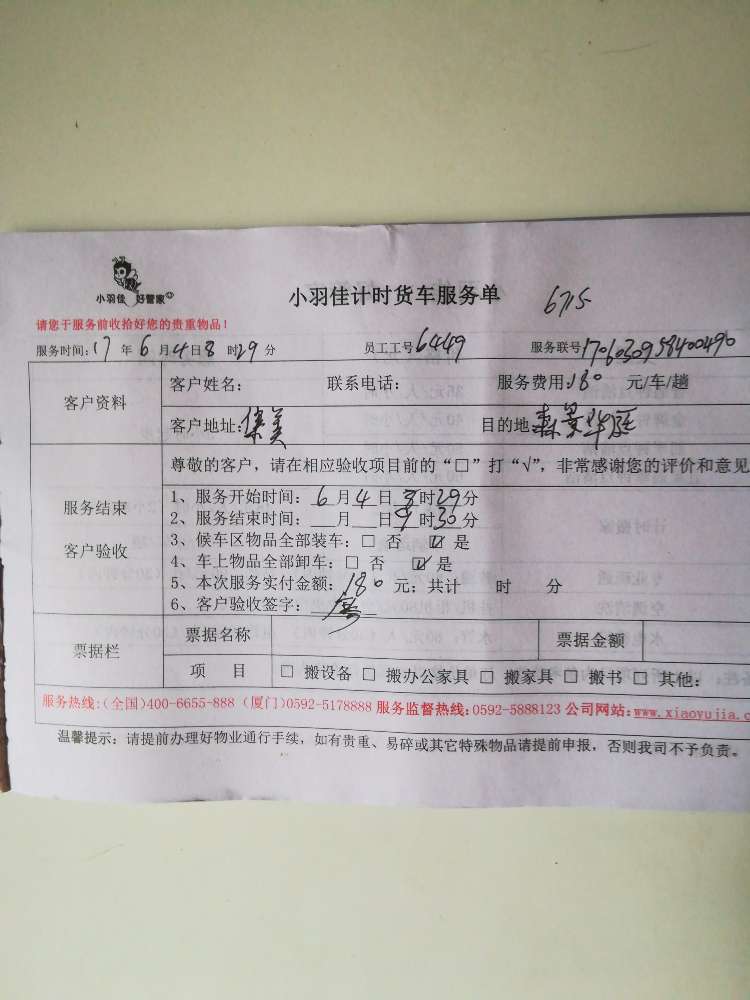 小羽佳 好管家
小羽佳计时货车服务单 6715
请您于服务前收拾好您的贵重物品！
服务时间：17 年 6 月 4 日 8 时 29 分 员工工号 6449 服务联号 170603095840049
客户资料
客户姓名： 联系电话： 服务费用：180 元/车/趟
客户地址：集美 目的地 森景华庭
服务结束
客户验收
尊敬的客户，请在相应验收项目前的“□”打“√”，非常感谢您的评价和意见
1、服务开始时间：6 月 4 日 8 时 29 分
2、服务结束时间：__月__日 9 时 30 分
3、候车区物品全部装车：□ 否 ☑ 是
4、车上物品全部卸车：□ 否 ☑ 是
5、本次服务实付金额：180 元；共计 时 分
6、客户验收签字：
票据栏
票据名称 票据金额
项 目 □ 搬设备 □ 搬办公家具 □ 搬家具 □ 搬书 □ 其他：
服务热线：（全国）400-6655-888（厦门）0592-5178888 服务监督热线：0592-5888123 公司网站：www.xiaoyujia.c
温馨提示：请提前办理好物业通行手续，如有贵重、易碎或其它特殊物品请提前申报，否则我司不予负责。